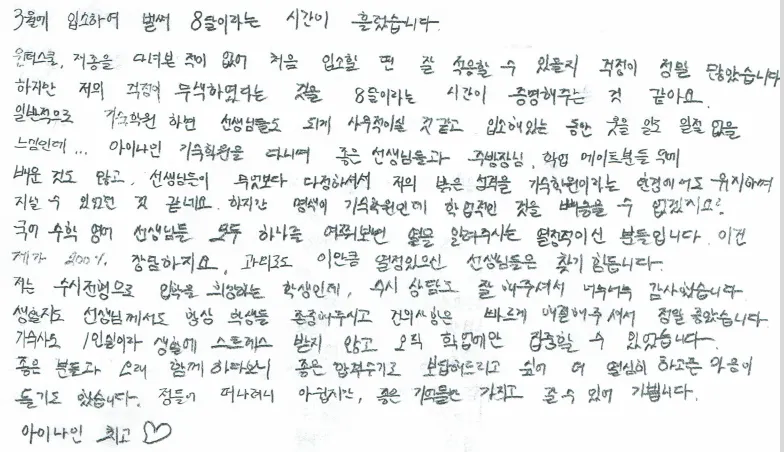 3월에 입소하여 벌써 8월이라는 시간이 흘렀습니다.
윈터스쿨, 재종을 다녀본 적이 없어 처음 입소할 땐 잘 적응할 수 있을지 걱정이 정말 많았습니다
하지만 저의 걱정이 무색하였다는 것을 8월이라는 시간이 증명해주는 것 같아요.
일반적으로 기숙학원 하면 선생님들도 되게 사무적이실 것 같고 입소해있는 동안 웃을 일도 일절 없을
느낌인데... 아이나인 기숙학원을 다니며 좋은 선생님들과 주방장님, 학업 메이트분들 덕에
배운 것도 많고, 선생님들이 무엇보다 다정하셔서 저의 밝은 성격을 기숙학원이라는 환경에서도 유지하며
지낼 수 있었던 것 같네요. 하지만 명색이 기숙학원인데 학업적인 것을 빼놓을 수 없겠지요?
국어 수학 영어 선생님들 모두 하나를 여쭤보면 열을 알려주시는 열정적이신 분들입니다. 이건
제가 200% 장담하지요, 과외로도 이만큼 열정있으신 선생님들은 찾기 힘듭니다.
저는 수시전형으로 입학을 희망하는 학생인데, 수시 상담도 잘 해주셔서 너무너무 감사했습니다
생활지도 선생님께서도 항상 학생들 존중해주시고 건의사항은 빠르게 해결해주셔서 정말 좋았습니다
기숙사도 1인실이라 생활에 스트레스 받지 않고 오직 학업에만 집중할 수 있었습니다.
좋은 분들과 오래 함께 하다보니 좋은 합격수기로 보답해드리고 싶어 더 열심히 하고픈 마음이
들기도 했습니다. 정들어 떠나려니 아쉽지만, 좋은 기억들만 가지고 갈 수 있어 기쁩니다.
아이나인 최고 ♡